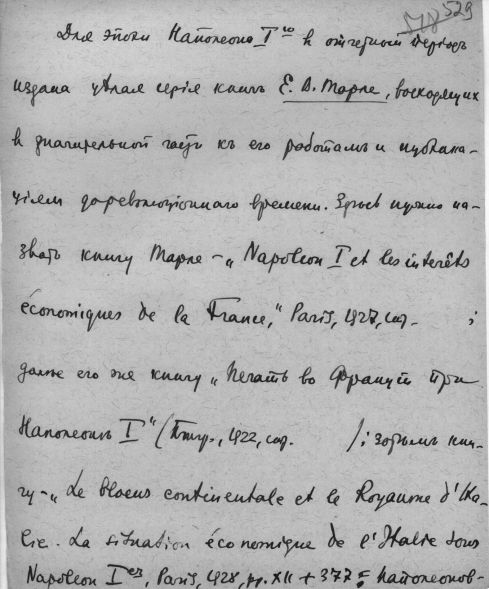 529
Для эпохи Наполеона I го в отчетный период
издана цѣлая серiя книгъ Е. В. Тарле, восходящих
в значительной части къ его работамъ и публика-
цiям дореволюцiоннаго времени. Здѣсь нужно на-
звать книгу Тарле – „Napoleon I et les intérêts
économiques de la France", Paris, 1927, стр. ;
далѣе его же книгу „Печать во Францiи при
Наполеонѣ I" (Птгр., 1922, стр. ); затѣмъ кни-
гу – „Le blocus continentale et le Royaume d'Ita-
lie. La situation économique de l'Italie sous
Napoléon I er, Paris, 1928, pp. XII + 377 наполеонов-